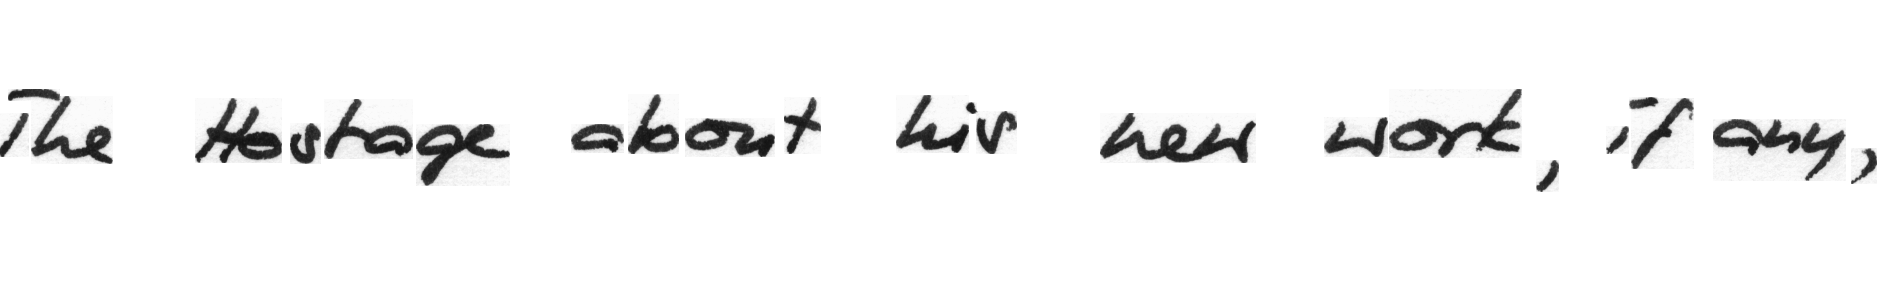 The Hostage about his new work, if any,